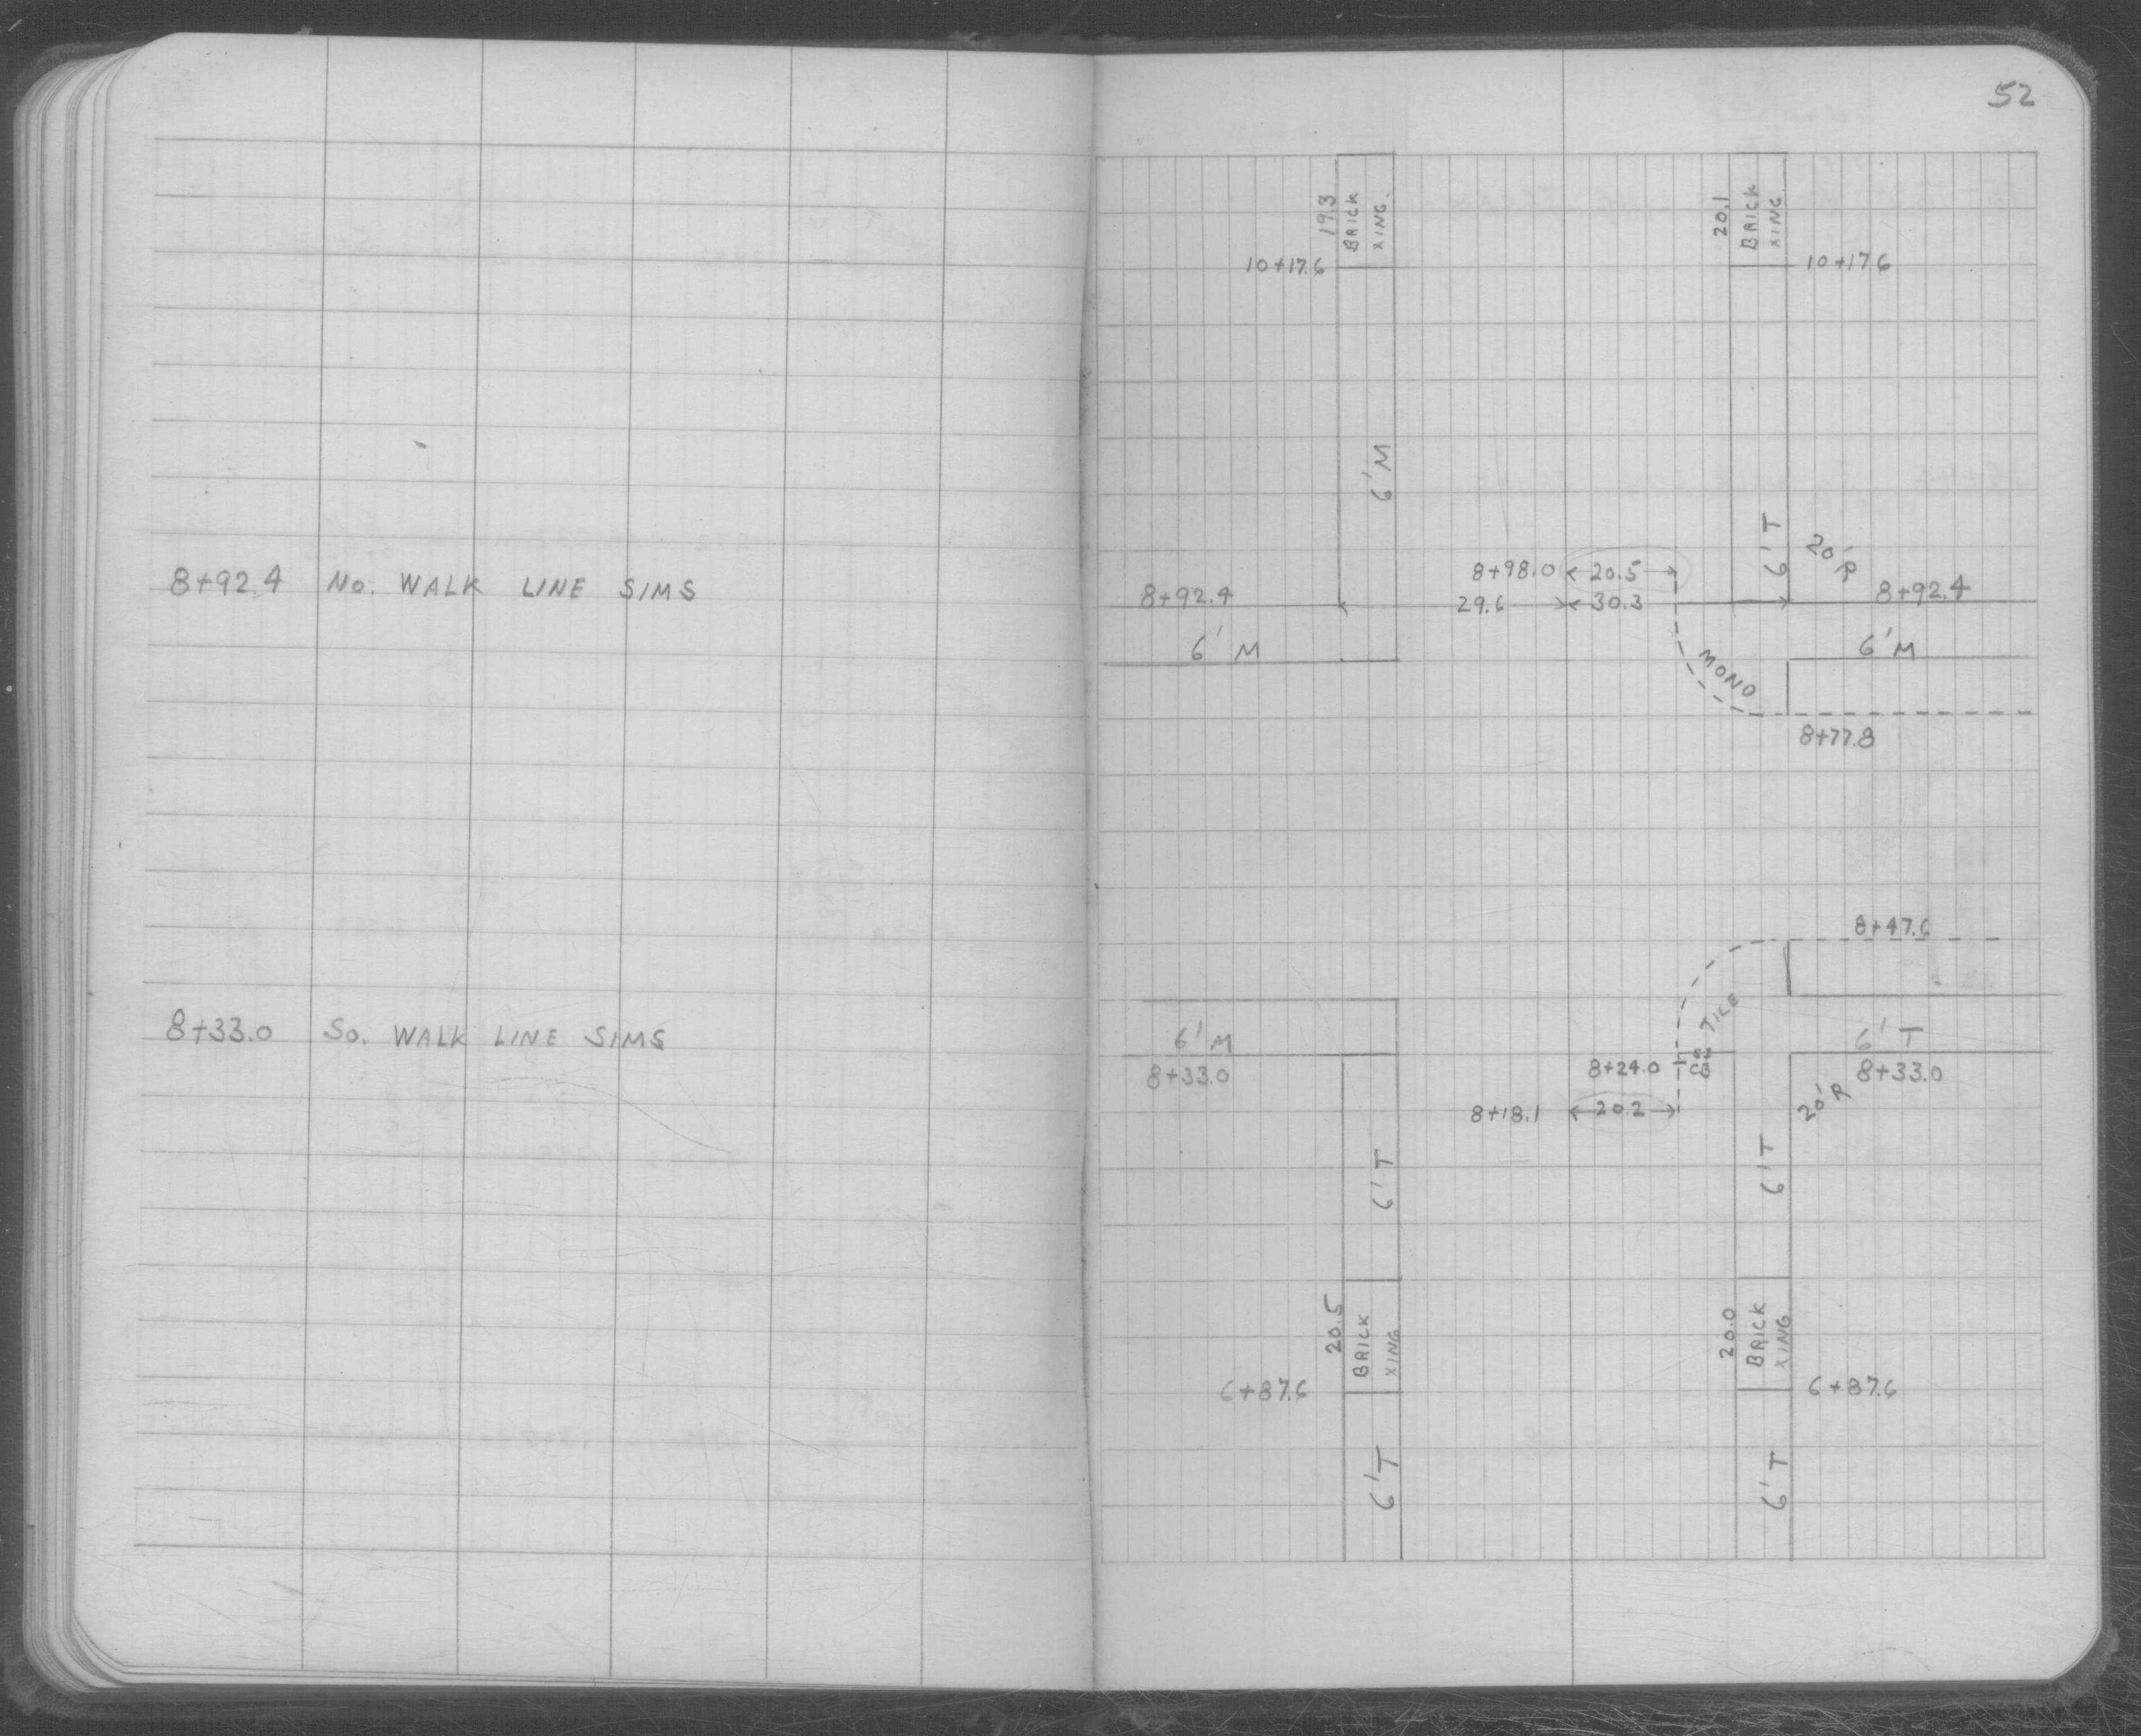 52
19.3
BRICK
XING.
20.1
BRICK
XING
10+17.6
10+17.6
6'M
6'T
20'R
8+98.0
20.5
8+92.4 No. WALK LINE SIMS
8+92.4
29.6
30.3
8+92.4
6'M
6'M
MONO
8+77.8
8+47.6
TILE
8+33.0 So. WALK LINE SIMS
6'M
6'T
8+33.0
8+24.0
CB
8+33.0
20'R
8+18.1
20.2
6'T
6'T
20.5
BRICK
XING
20.0
BRICK
XING
6+87.6
6+87.6
6'T
6'T